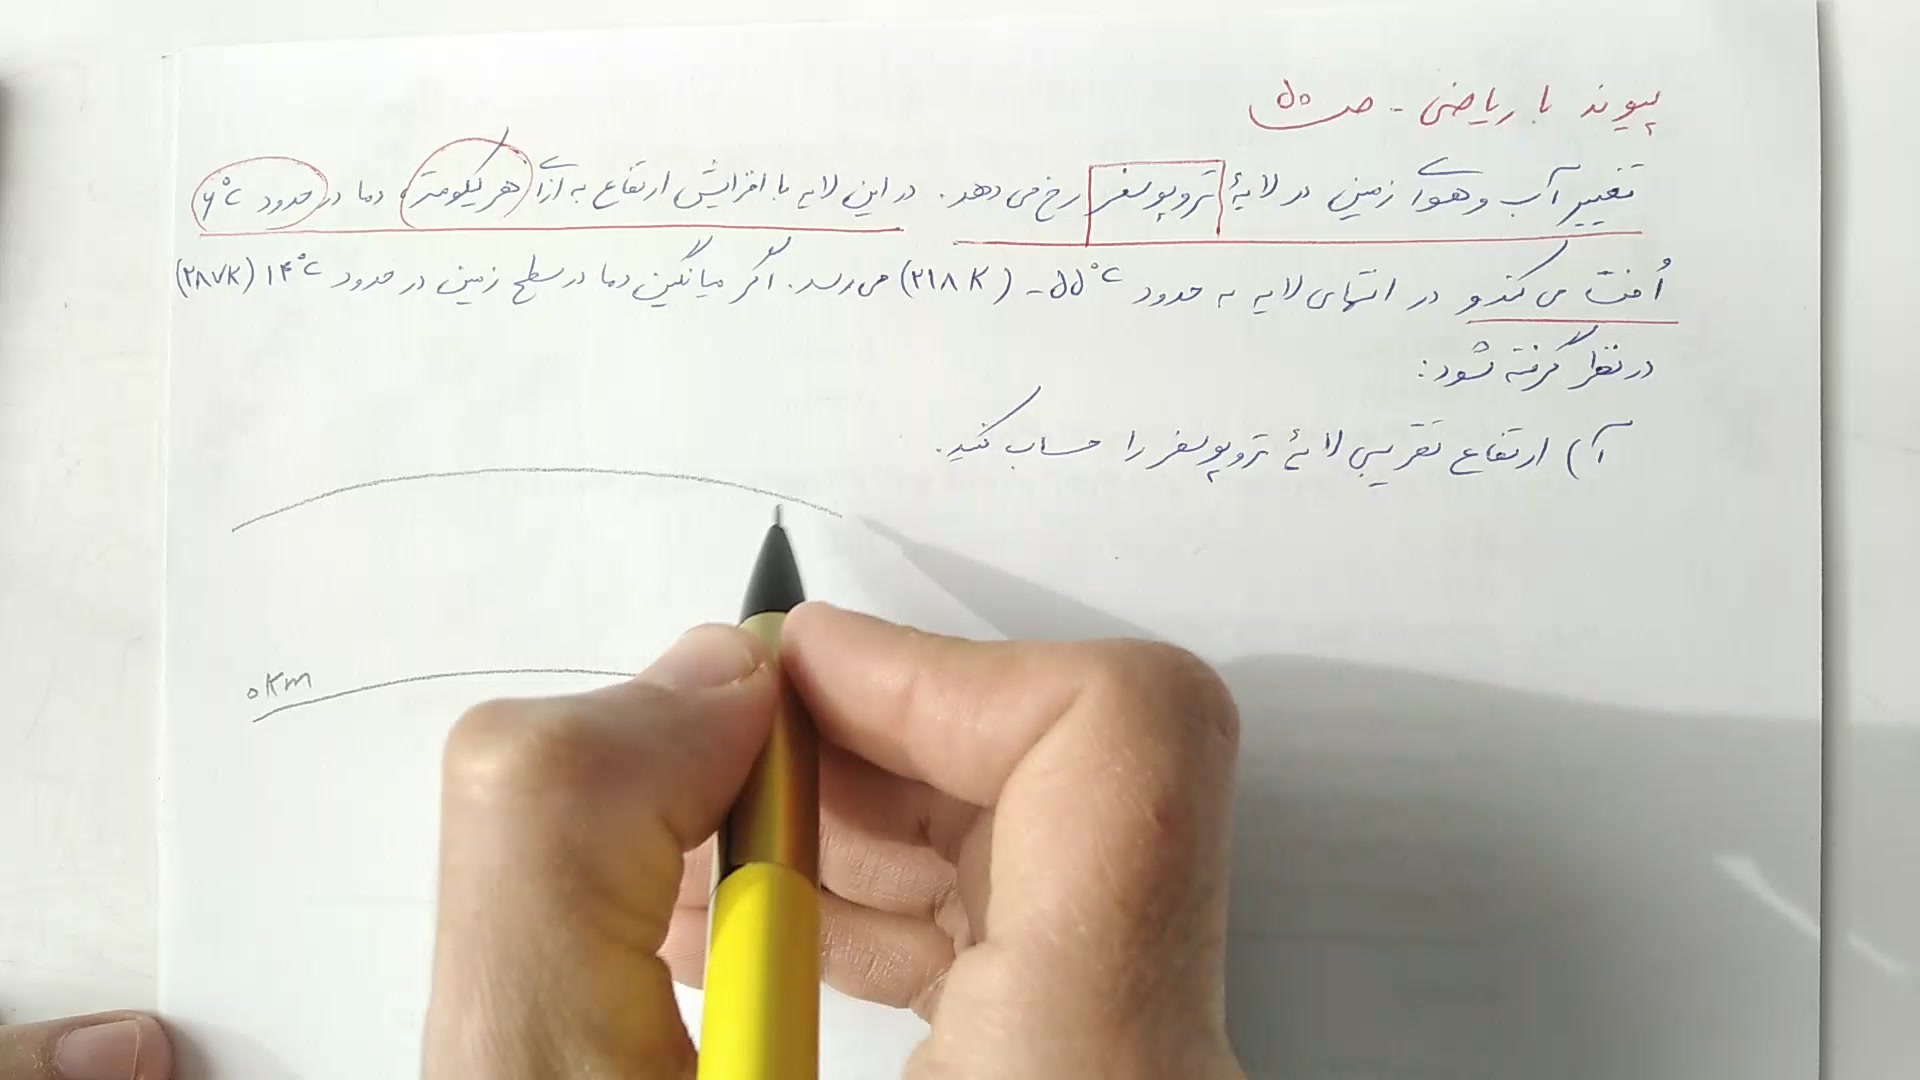 پیوند با ریاضی - صـ ۵۰
تغییر آب و هوای زمین در لایهٔ تروپوسفر رخ می دهد. در این لایه با افزایش ارتفاع به ازای هر کیلومتر، دما در حدود ۶°C
اُفت می کند و در انتهای لایه به حدود ۵۵°C- (۲۱۸ K) می رسد. اگر میانگین دما در سطح زمین در حدود ۱۴°C (۲۸۷K)
در نظر گرفته شود:
آ) ارتفاع تقریبی لایهٔ تروپوسفر را حساب کنید.
۰Km